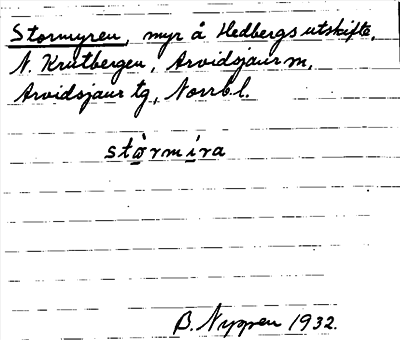 Stormyren, myr å Hedbergs utskifte,
N. Krutbergen, Arvidsjaur m,
Arvidsjaur tg, Norrb.l.
stòrmira
B. Nyppen 1932.